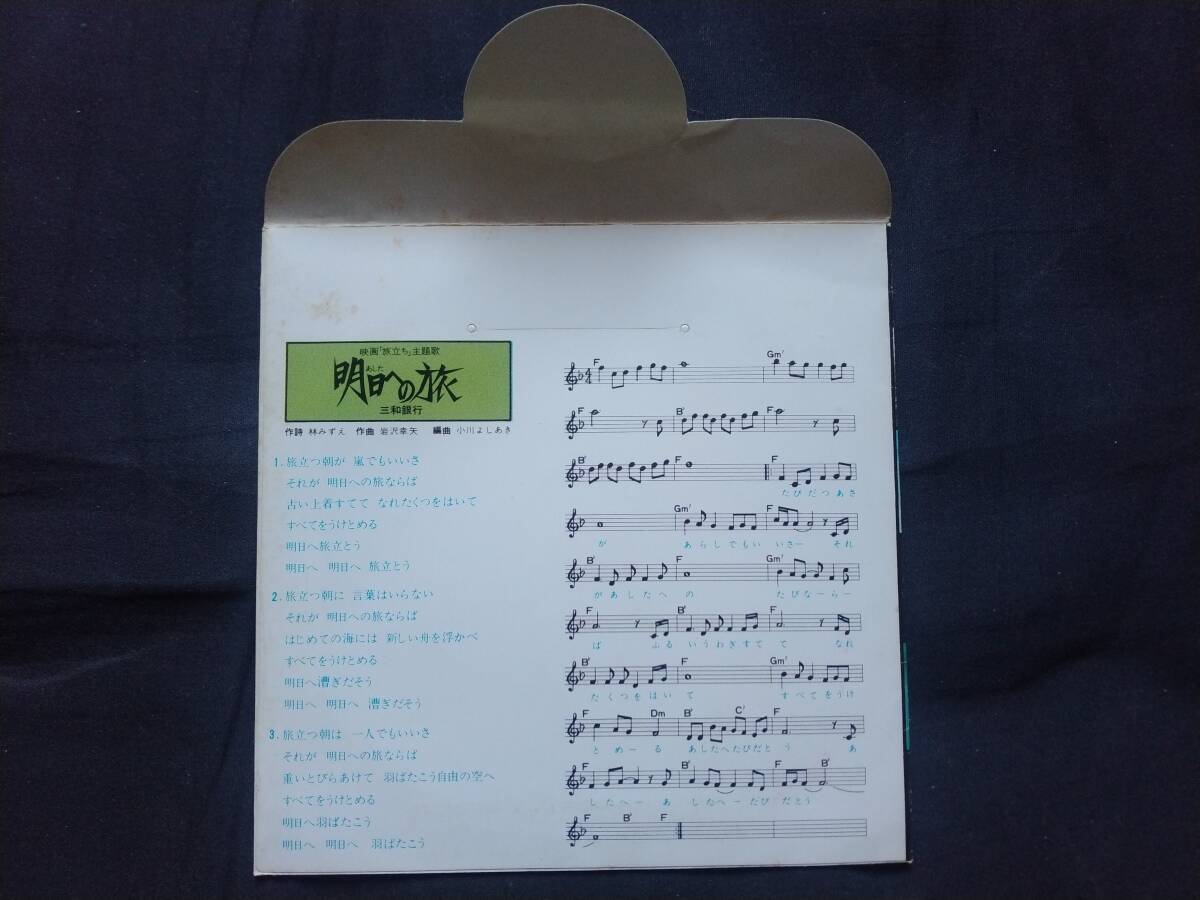 映画「旅立ち」主題歌
あした
明日への旅
三和銀行
作詩 林みずえ 作曲 岩沢幸矢 編曲 小川よしあき
1. 旅立つ朝が 嵐でもいいさ
それが 明日への旅ならば
古い上着すてて なれたくつをはいて
すべてをうけとめる
明日へ旅立とう
明日へ 明日へ 旅立とう
2. 旅立つ朝に 言葉はいらない
それが 明日への旅ならば
はじめての海には 新しい舟を浮かべ
すべてをうけとめる
明日へ漕ぎだそう
明日へ 明日へ 漕ぎだそう
3. 旅立つ朝は 一人でもいいさ
それが 明日への旅ならば
重いとびらあけて 羽ばたこう自由の空へ
すべてをうけとめる
明日へ羽ばたこう
明日へ 明日へ 羽ばたこう
F Gm7
F B♭ F
B♭ F F
たびだつあさ
Gm7 F
が あらしでもい いさー それ
B♭ F Gm7
があしたへ の たびなーらー
F B♭ F
ば ふる いうわぎすて て なれ
B♭ F Gm7
たくつをはい て すべてをうけ
F Dm B♭ C7 F
とめーる あしたへたびだと う あ
F B♭ F B♭
したへー あ したへーたび だとう
F B♭ F